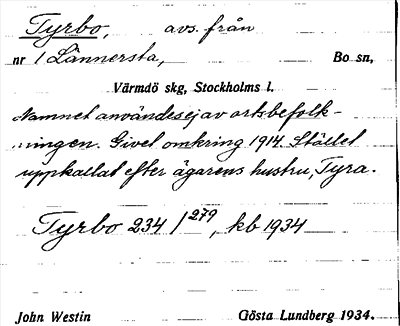 Tyrbo, avs. från
nr 1 Lännersta, Bo sn,
Värmdö skg, Stockholms l.
Namnet användes ej av ortsbefolk-
ningen. Givet omkring 1914. Stället
uppkallat efter ägarens hustru, Tyra.
Tyrbo 234/279, kb 1934
John Westin Gösta Lundberg 1934.